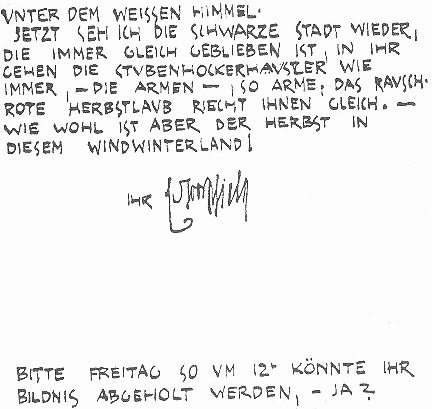 VNTER DEM WEISSEN HIMMEL.
JETZT SEH ICH DIE SCHWARZE STADT WIEDER,
DIE IMMER GLEICH GEBLIEBEN IST, IN IHR
GEHEN DIE STVBENHOCKERHAUSLER WIE
IMMER, – DIE ARMEN –, SO ARME, DAS RAVSCH-
ROTE HERBSTLAVB RIECHT IHNEN GLEICH. –
WIE WOHL IST ABER DER HERBST IN
DIESEM WINDWINTERLAND!
IHR
BITTE FREITAG SO VM 12h KÖNNTE IHR
BILDNIS ABGEHOLT WERDEN, – JA?